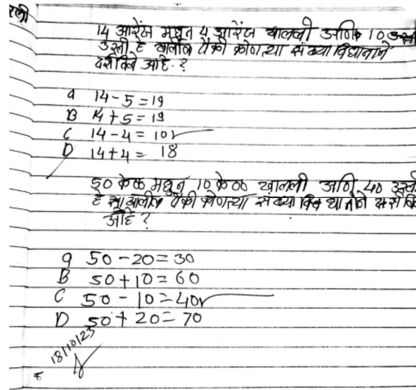 14 आरेंज मधून 4 आरेंज खाल्ली आणि 10
उरली हे खालील पैकी कोणत्या संख्या विधानाने
दर्शविले आहे.?
a 14-5=19
B 14+5=19
C 14-4=10
D 14+4= 18
50 केळ मधून 10 केळ खाल्ली आणि 40
हे खालील पैकी कोणत्या संख्या
आहे?
a 50-20=30
B 50+10=60
C 50-10=40
D 50+20=70
18/10/23